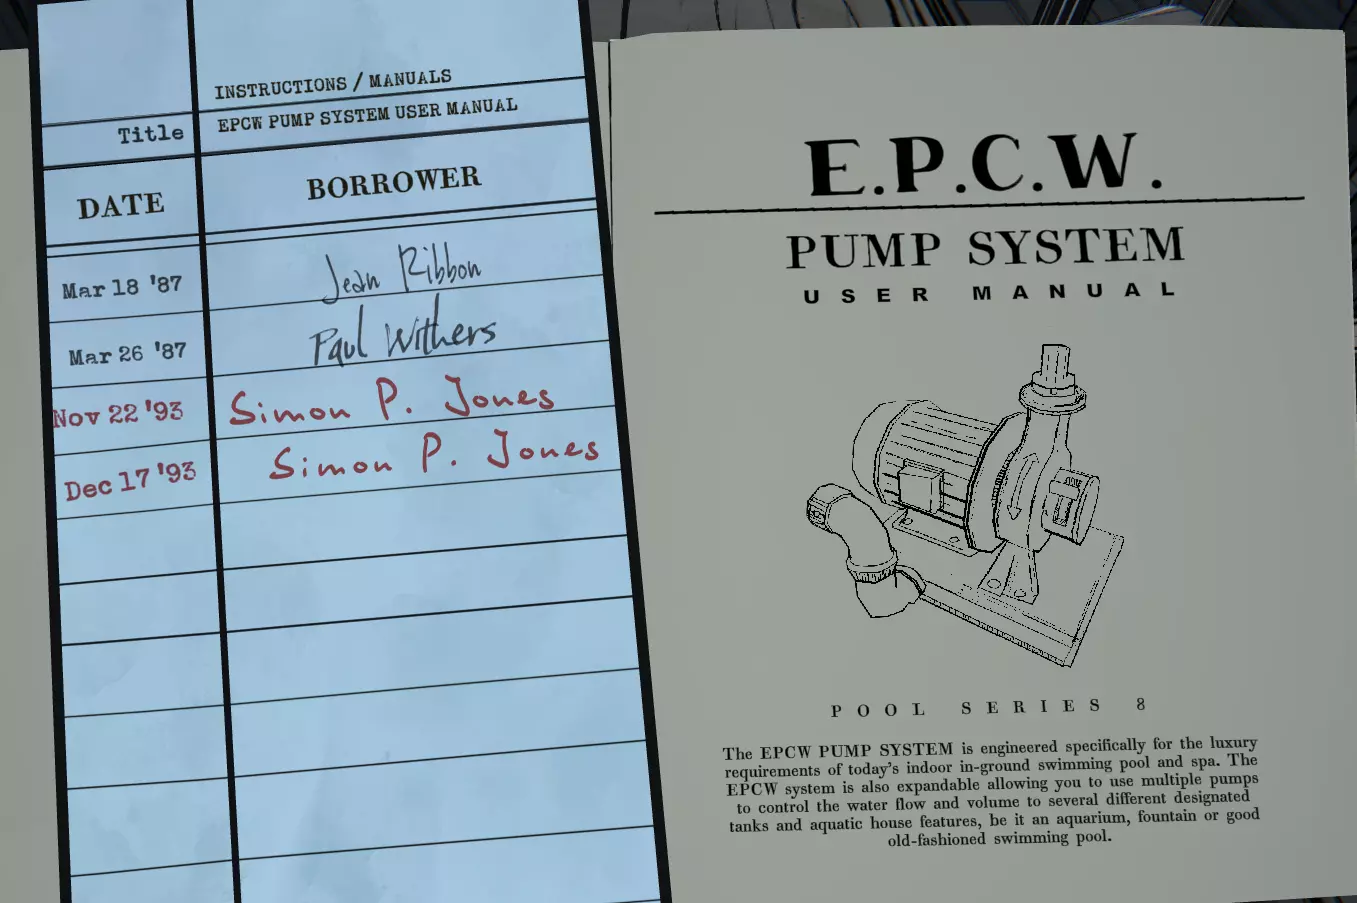 INSTRUCTIONS / MANUALS
Title EPCW PUMP SYSTEM USER MANUAL
DATE BORROWER
Mar 18 '87 Jean Ribbon
Mar 26 '87 Paul Withers
Nov 22 '93 Simon P. Jones
Dec 17 '93 Simon P. Jones
E.P.C.W.
PUMP SYSTEM
USER MANUAL
POOL SERIES 8
The EPCW PUMP SYSTEM is engineered specifically for the luxury
requirements of today's indoor in-ground swimming pool and spa. The
EPCW system is also expandable allowing you to use multiple pumps
to control the water flow and volume to several different designated
tanks and aquatic house features, be it an aquarium, fountain or good
old-fashioned swimming pool.